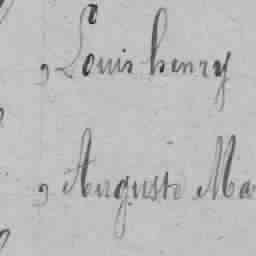 , Louis henry
, Auguste Ma